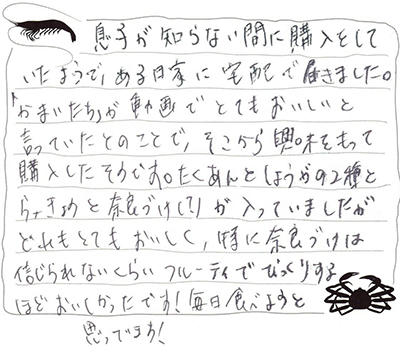 息子が知らない間に購入をして
いたようで、ある日家に宅配で届きました。
"かまいたち"が動画でとてもおいしいと
言っていたとのことで、そこから興味をもって
購入したそうです。たくあんとしょうがの2種と
らっきょうと奈良づけ(?)が入っていましたが
どれもとてもおいしく、特に奈良づけは
信じられないくらいフルーティでびっくりする
ほどおいしかったです!毎日食べようと
思ってます!